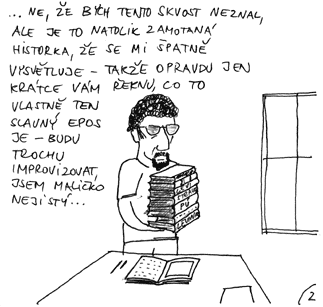 ... NE, ŽE BYCH TENTO SKVOST NEZNAL,
ALE JE TO NATOLIK ZAMOTANÁ
HISTORKA, ŽE SE MI ŠPATNĚ
VYSVĚTLUJE - TAKŽE OPRAVDU JEN
KRÁTCE VÁM ŘEKNU, CO TO
VLASTNĚ TEN
SLAVNÝ EPOS
JE - BUDU
TROCHU
IMPROVIZOVAT,
JSEM MALIČKO
NEJISTÝ...
2